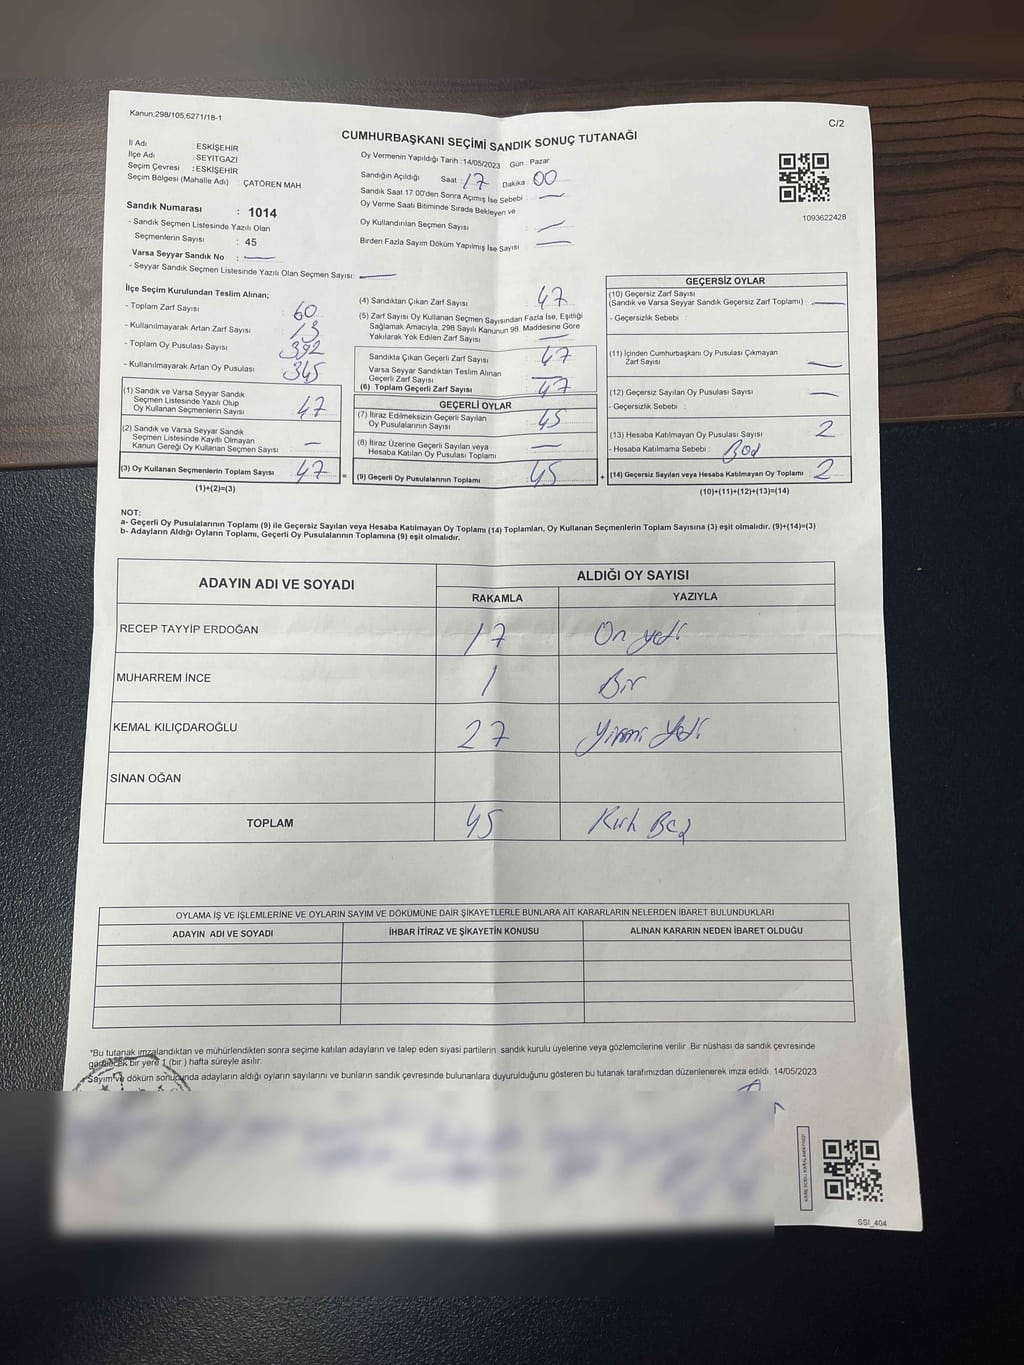 Kanun;298/105,6271/18-1
C/2
CUMHURBAŞKANI SEÇİMİ SANDIK SONUÇ TUTANAĞI
İl Adı : ESKİŞEHİR
İlçe Adı : SEYİTGAZİ
Seçim Çevresi : ESKİŞEHİR
Seçim Bölgesi (Mahalle Adı) ÇATÖREN MAH
Sandık Numarası : 1014
- Sandık Seçmen Listesinde Yazılı Olan
Seçmenlerin Sayısı : 45
Varsa Seyyar Sandık No : —
- Seyyar Sandık Seçmen Listesinde Yazılı Olan Seçmen Sayısı: —
Oy Vermenin Yapıldığı Tarih : 14/05/2023 Gün : Pazar
Sandığın Açıldığı Saat : 17 Dakika : 00
Sandık Saat 17:00'den Sonra Açımış İse Sebebi : —
Oy Verme Saati Bitiminde Sırada Bekleyen ve
Oy Kullandırılan Seçmen Sayısı : —
Birden Fazla Sayım Döküm Yapılmış İse Sayısı : —
1093622428
İlçe Seçim Kurulundan Teslim Alınan;
- Toplam Zarf Sayısı 60
- Kullanılmayarak Artan Zarf Sayısı : 13
- Toplam Oy Pusulası Sayısı : 392
- Kullanılmayarak Artan Oy Pusulası 345
(1) Sandık ve Varsa Seyyar Sandık
Seçmen Listesinde Yazılı Olup
Oy Kullanan Seçmenlerin Sayısı 47
(2) Sandık ve Varsa Seyyar Sandık
Seçmen Listesinde Kayıtlı Olmayan
Kanun Gereği Oy Kullanan Seçmen Sayısı —
(3) Oy Kullanan Seçmenlerin Toplam Sayısı 47 =
(1)+(2)=(3)
(4) Sandıktan Çıkan Zarf Sayısı 47
(5) Zarf Sayısı Oy Kullanan Seçmen Sayısından Fazla İse, Eşitliği
Sağlamak Amacıyla, 298 Sayılı Kanunun 98. Maddesine Göre
Yakılarak Yok Edilen Zarf Sayısı —
Sandıkta Çıkan Geçerli Zarf Sayısı 47
Varsa Seyyar Sandıktan Teslim Alınan
Geçerli Zarf Sayısı —
(6) Toplam Geçerli Zarf Sayısı 47
GEÇERLİ OYLAR
(7) İtiraz Edilmeksizin Geçerli Sayılan
Oy Pusulalarının Sayısı 45
(8) İtiraz Üzerine Geçerli Sayılan veya
Hesaba Katılan Oy Pusulası Toplamı —
(9) Geçerli Oy Pusulalarının Toplamı 45 +
GEÇERSİZ OYLAR
(10) Geçersiz Zarf Sayısı
(Sandık ve Varsa Seyyar Sandık Geçersiz Zarf Toplamı) : —
- Geçersizlik Sebebi :
(11) İçinden Cumhurbaşkanı Oy Pusulası Çıkmayan
Zarf Sayısı —
(12) Geçersiz Sayılan Oy Pusulası Sayısı —
- Geçersizlik Sebebi :
(13) Hesaba Katılmayan Oy Pusulası Sayısı 2
- Hesaba Katılmama Sebebi :
(14) Geçersiz Sayılan veya Hesaba Katılmayan Oy Toplamı 2
(10)+(11)+(12)+(13)=(14)
NOT:
a- Geçerli Oy Pusulalarının Toplamı (9) ile Geçersiz Sayılan veya Hesaba Katılmayan Oy Toplamı (14) Toplamları, Oy Kullanan Seçmenlerin Toplam Sayısına (3) eşit olmalıdır. (9)+(14)=(3)
b- Adayların Aldığı Oyların Toplamı, Geçerli Oy Pusulalarının Toplamına (9) eşit olmalıdır.
ADAYIN ADI VE SOYADI
ALDIĞI OY SAYISI
RAKAMLA YAZIYLA
RECEP TAYYİP ERDOĞAN 17 On yedi
MUHARREM İNCE 1 Bir
KEMAL KILIÇDAROĞLU 27 Yirmi Yedi
SİNAN OĞAN
TOPLAM 45 Kırk Beş
OYLAMA İŞ VE İŞLEMLERİNE VE OYLARIN SAYIM VE DÖKÜMÜNE DAİR ŞİKAYETLERLE BUNLARA AİT KARARLARIN NELERDEN İBARET BULUNDUKLARI
ADAYIN ADI VE SOYADI İHBAR İTİRAZ VE ŞİKAYETİN KONUSU ALINAN KARARIN NEDEN İBARET OLDUĞU
*Bu tutanak imzalandıktan ve mühürlendikten sonra seçime katılan adayların ve talep eden siyasi partilerin sandık kurulu üyelerine veya gözlemcilerine verilir .Bir nüshası da sandık çevresinde
görülecek bir yere 1 (bir ) hafta süreyle asılır.
Sayım ve döküm sonucunda adayların aldığı oyların sayılarını ve bunların sandık çevresinde bulunanlara duyurulduğunu gösteren bu tutanak tarafımızdan düzenlenerek imza edildi. 14/05/2023
SSI_404